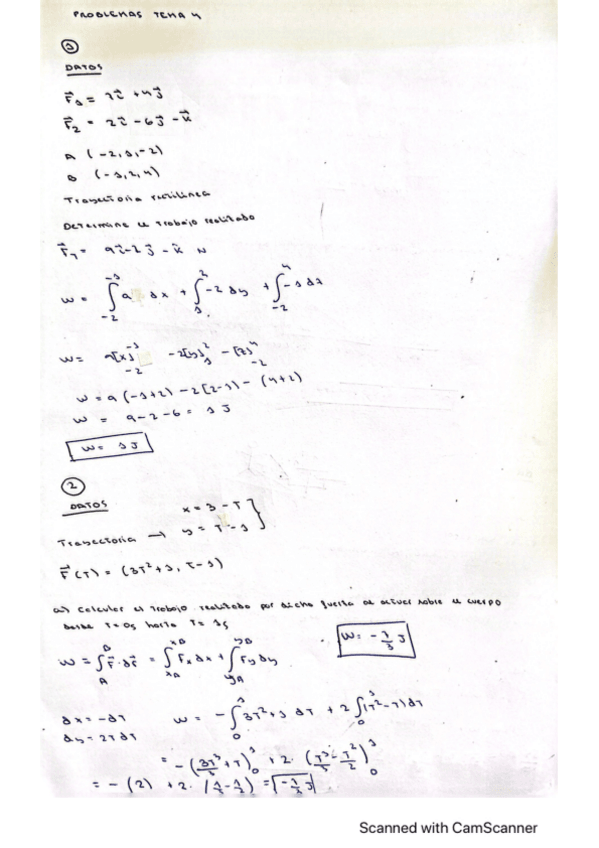 PROBLEMAS TEMA 4
①
DATOS
F⃗₁ = 7i⃗ + 4j⃗
F⃗₂ = 2i⃗ - 6j⃗ - k⃗
A (-2, 1, -2)
B (-1, 2, 4)
Trayectoria rectilínea
Determine el trabajo realizado
F⃗T = 9i⃗ - 2j⃗ - k⃗ N
W = ∫₋₂⁻¹ 9 dx + ∫₁² -2 dy + ∫₋₂⁴ -1 dz
W = 9[x]₋₂⁻¹ - 2[y]₁² - [z]₋₂⁴
W = 9 (-1+2) - 2[2-1] - (4+2)
W = 9 - 2 - 6 = 1 J
W = 1 J
②
DATOS
x = 3 - T
Trayectoria → y = T - 1 }
F⃗(T) = (3T² + 1, T - 1)
a) Calcular el trabajo realizado por dicha fuerza al actuar sobre el cuerpo
desde T = 0s hasta T = 1s
W = ∫_A^B F⃗·dr⃗ = ∫_xA^xB Fx dx + ∫_yA^yB Fy dy
W = -7/3 J
dx = -dT W = -∫₀¹ 3T² + 1 dT + 2∫₀¹ (T² - T) dT
dy = 2T dT
= -(3T³/3 + T)₀¹ + 2·(T³/3 - T²/2)₀¹
= -(2) + 2·(1/3 - 1/2) = -7/3 J
Scanned with CamScanner